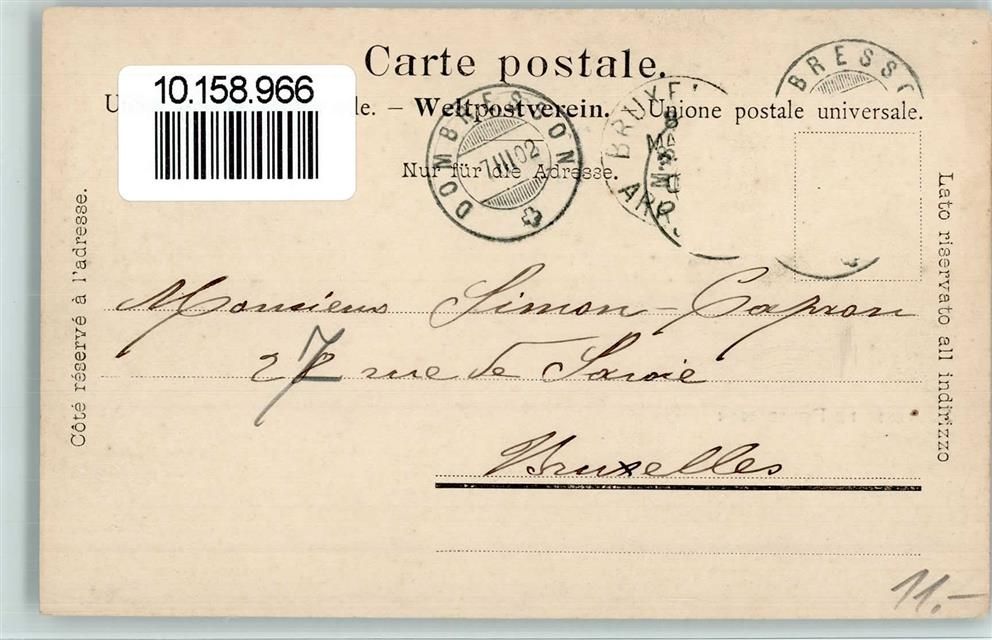 Carte postale.
10.158.966
le. – Weltpostverein. – Unione postale universale.
Nur für die Adresse.
DOMBRESSON
7.III.02
BRUXE
8
ARR
BRESSO
Côté réservé à l'adresse.
Lato riservato all indirizzo
Monsieur Simon-Capron
27 rue de Savoie
Bruxelles
11.-